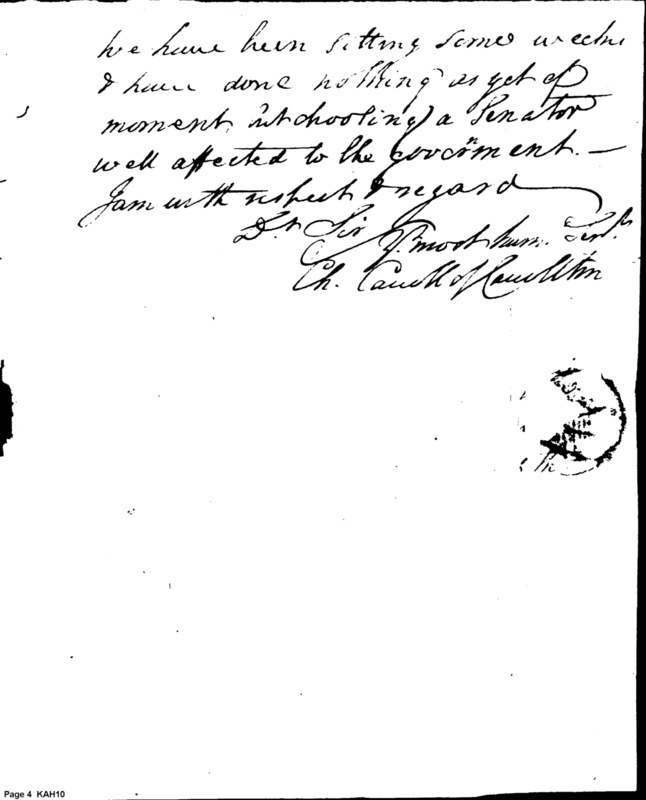 We have been sitting some weeks
& have done nothing as yet of
moment, but choosing a Senator
well affected to the govern̄ment. —
I am with respect & regard
Dr. Sir
Yr. most hum. Servt.
Ch. Carroll of Carrollton
Page 4 KAH10